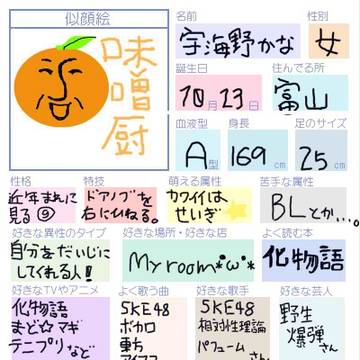 似顔絵
味噌厨
名前
宇海野かな
性別
女
誕生日
10月23日
住んでる所
富山
血液型
A型
身長
169cm
足のサイズ
25cm
性格
近年まれに
見る⑨
特技
ドアノブを
右にひねる。
萌える属性
カワイイは
せいぎ
苦手な属性
BLとか…。
好きな異性のタイプ
自分をだいじに
してくれる人!
好きな場所・好きな店
My room*'ω'*
よく読む本
化物語
好きなTVやアニメ
化物語
まど☆マギ
テニプリなど
よく歌う曲
SKE48
ボカロ
東方
好きな歌手
SKE48
相対性理論
パフュームさん
好きな芸人
野生
爆弾さん